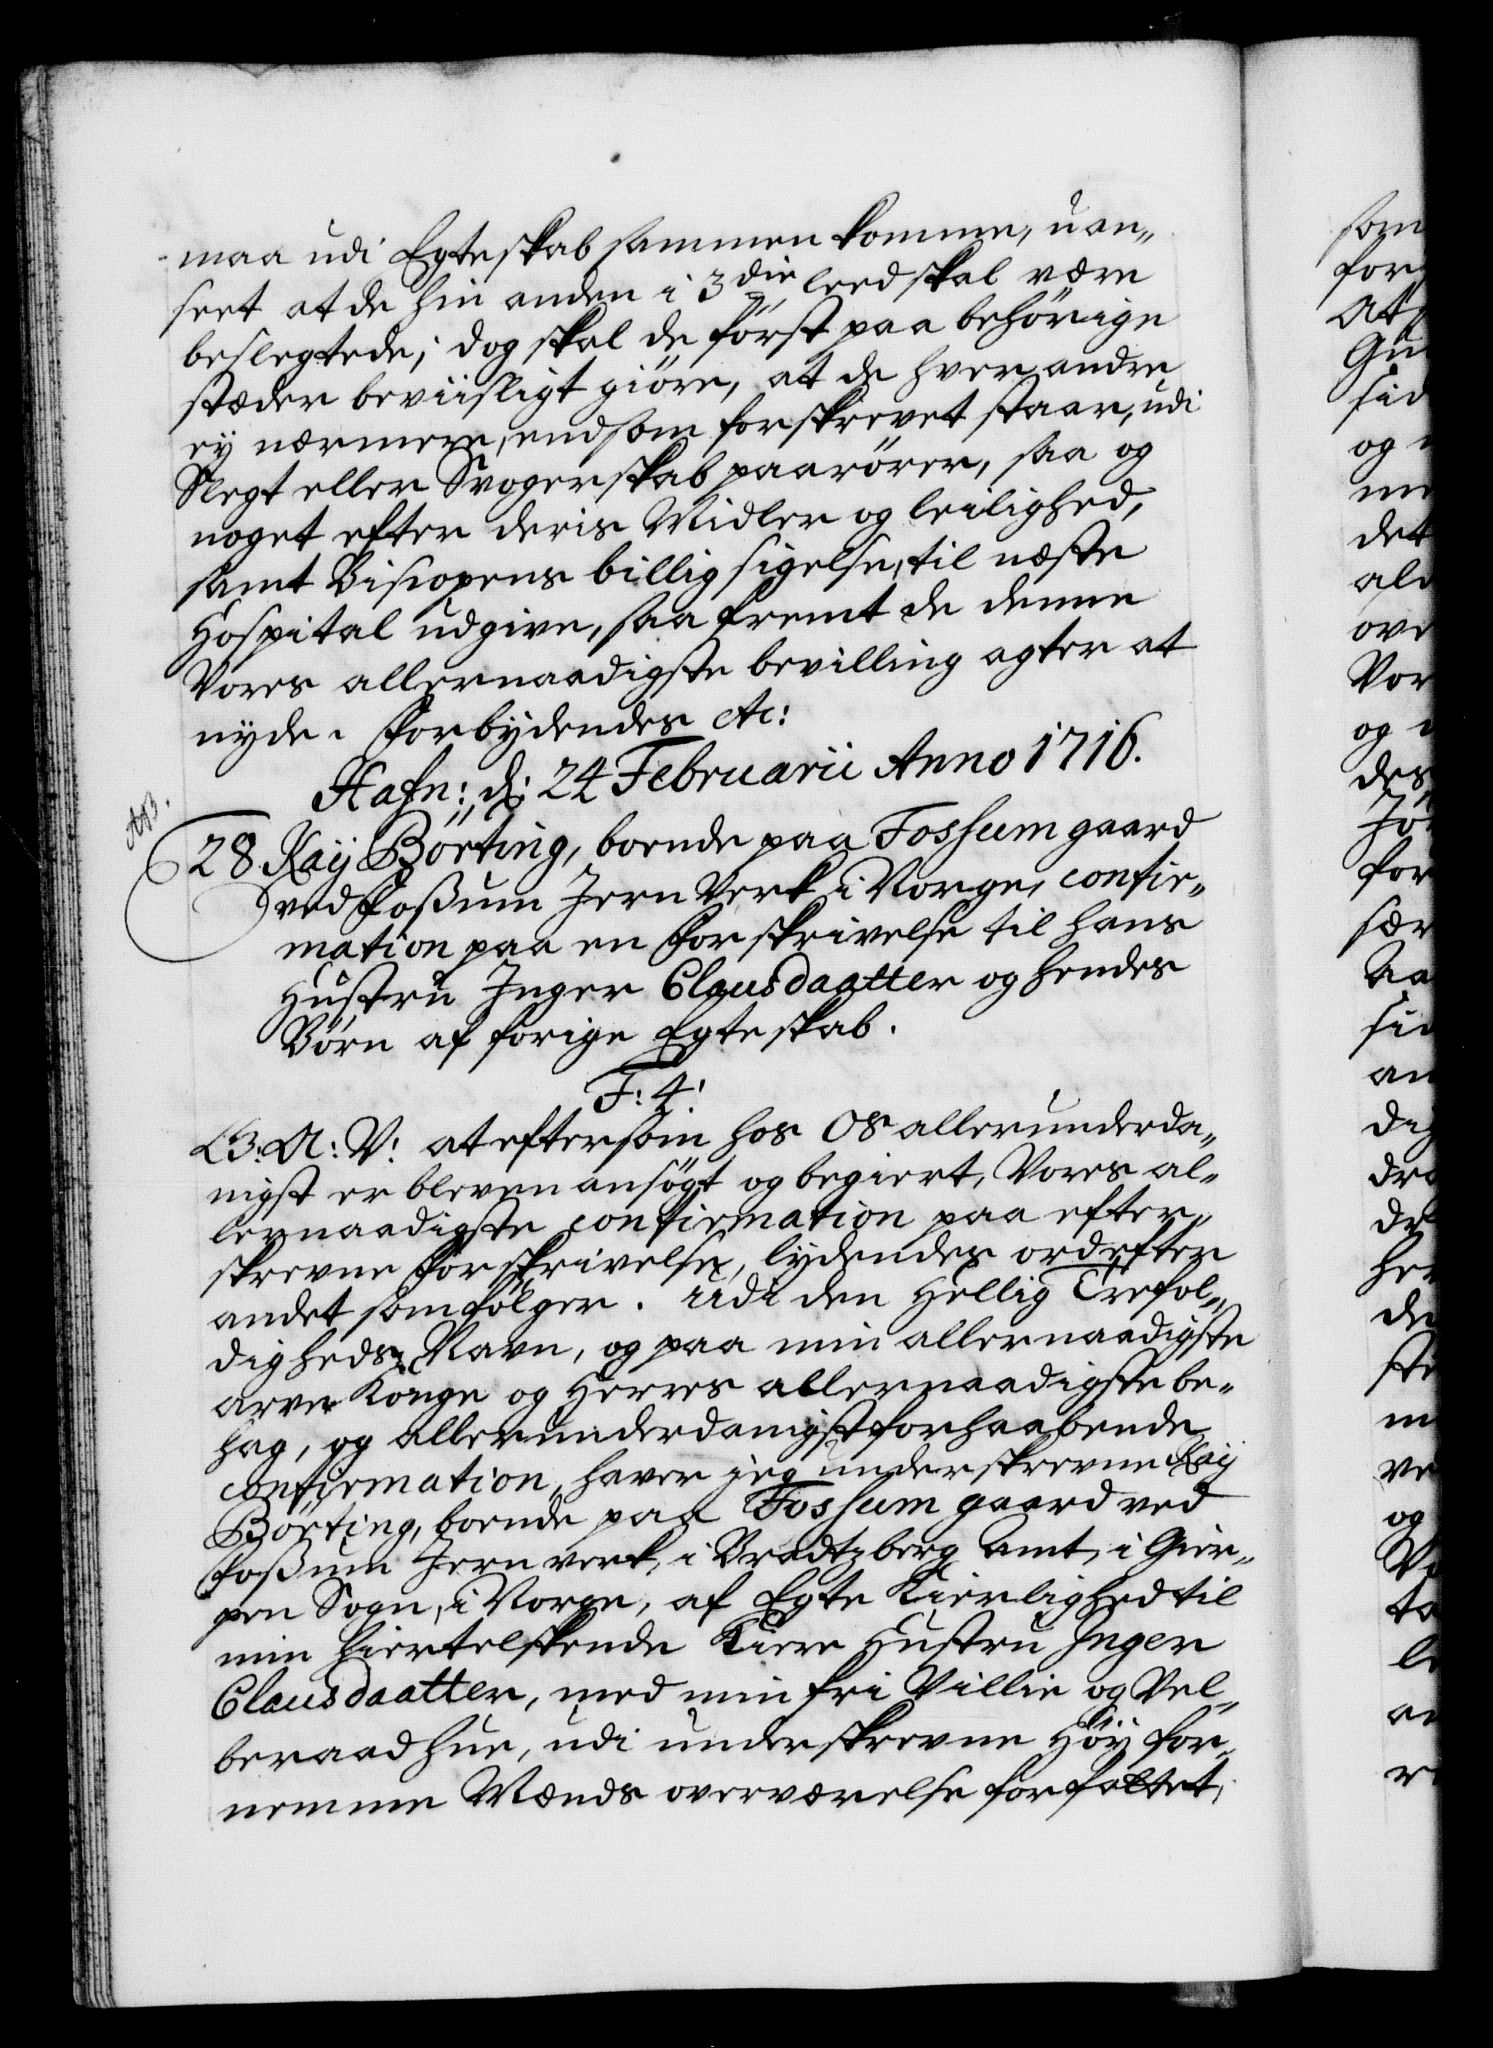 maa udi Egteskab sammen komme, uan„
seet at de hin anden i 3die leed skal være
beslegtede; dog skal de först paa behörige
stæder beviisligt giöre, at de hver andre
ey nærmere, end som forskrevet staar, udi
Slegt eller Svogerskab paarörer, saa og
noget efter deris Midler og leilighed,
samt Biscopens billig sigelse, til næste
Hospital udgive, saa fremt de denne
Vores allernaadigste bevilling agter at
nyde. Forbydendes etc:
Hafn: d: 24 Februarii Anno 1716.
28 Kaÿ Börting, boende paa Fossum gaard
ved Foßum Jern Verk i Norge, confir„
mation paa en Forskrivelse til hans
Hustru Inger Clausdaatter og hendes
Börn af forige Egteskab.
F: 4:
G: A: V: at eftersom hos OS allerunderda„
nigst er bleven ansögt og begiert, Vores al„
lernaadigste confirmation paa efter„
skrevne Forskrivelse, lydendes ord efter
andet som fölger. Udi den Hellig Trefol„
digheds Navn, og paa min allernaadigste
arve Konge og Herres allernaadigste be„
hag, og allerunderdanigst forhaabende
confirmation, haver jeg underskrevne Kaÿ
Börting, boende paa Fossum gaard ved
Foßum Jernverk, i Bradtzberg Amt, i Gier„
pen Sogn, i Norge, af Egte Kierlighed til
min hiertelskende Kiere Hustru Inger
Clausdaatter, med min fri Villie og Vel„
beraad hue, udi underskrevne Höÿ for„
nemme Mænds overværelse forfattet,